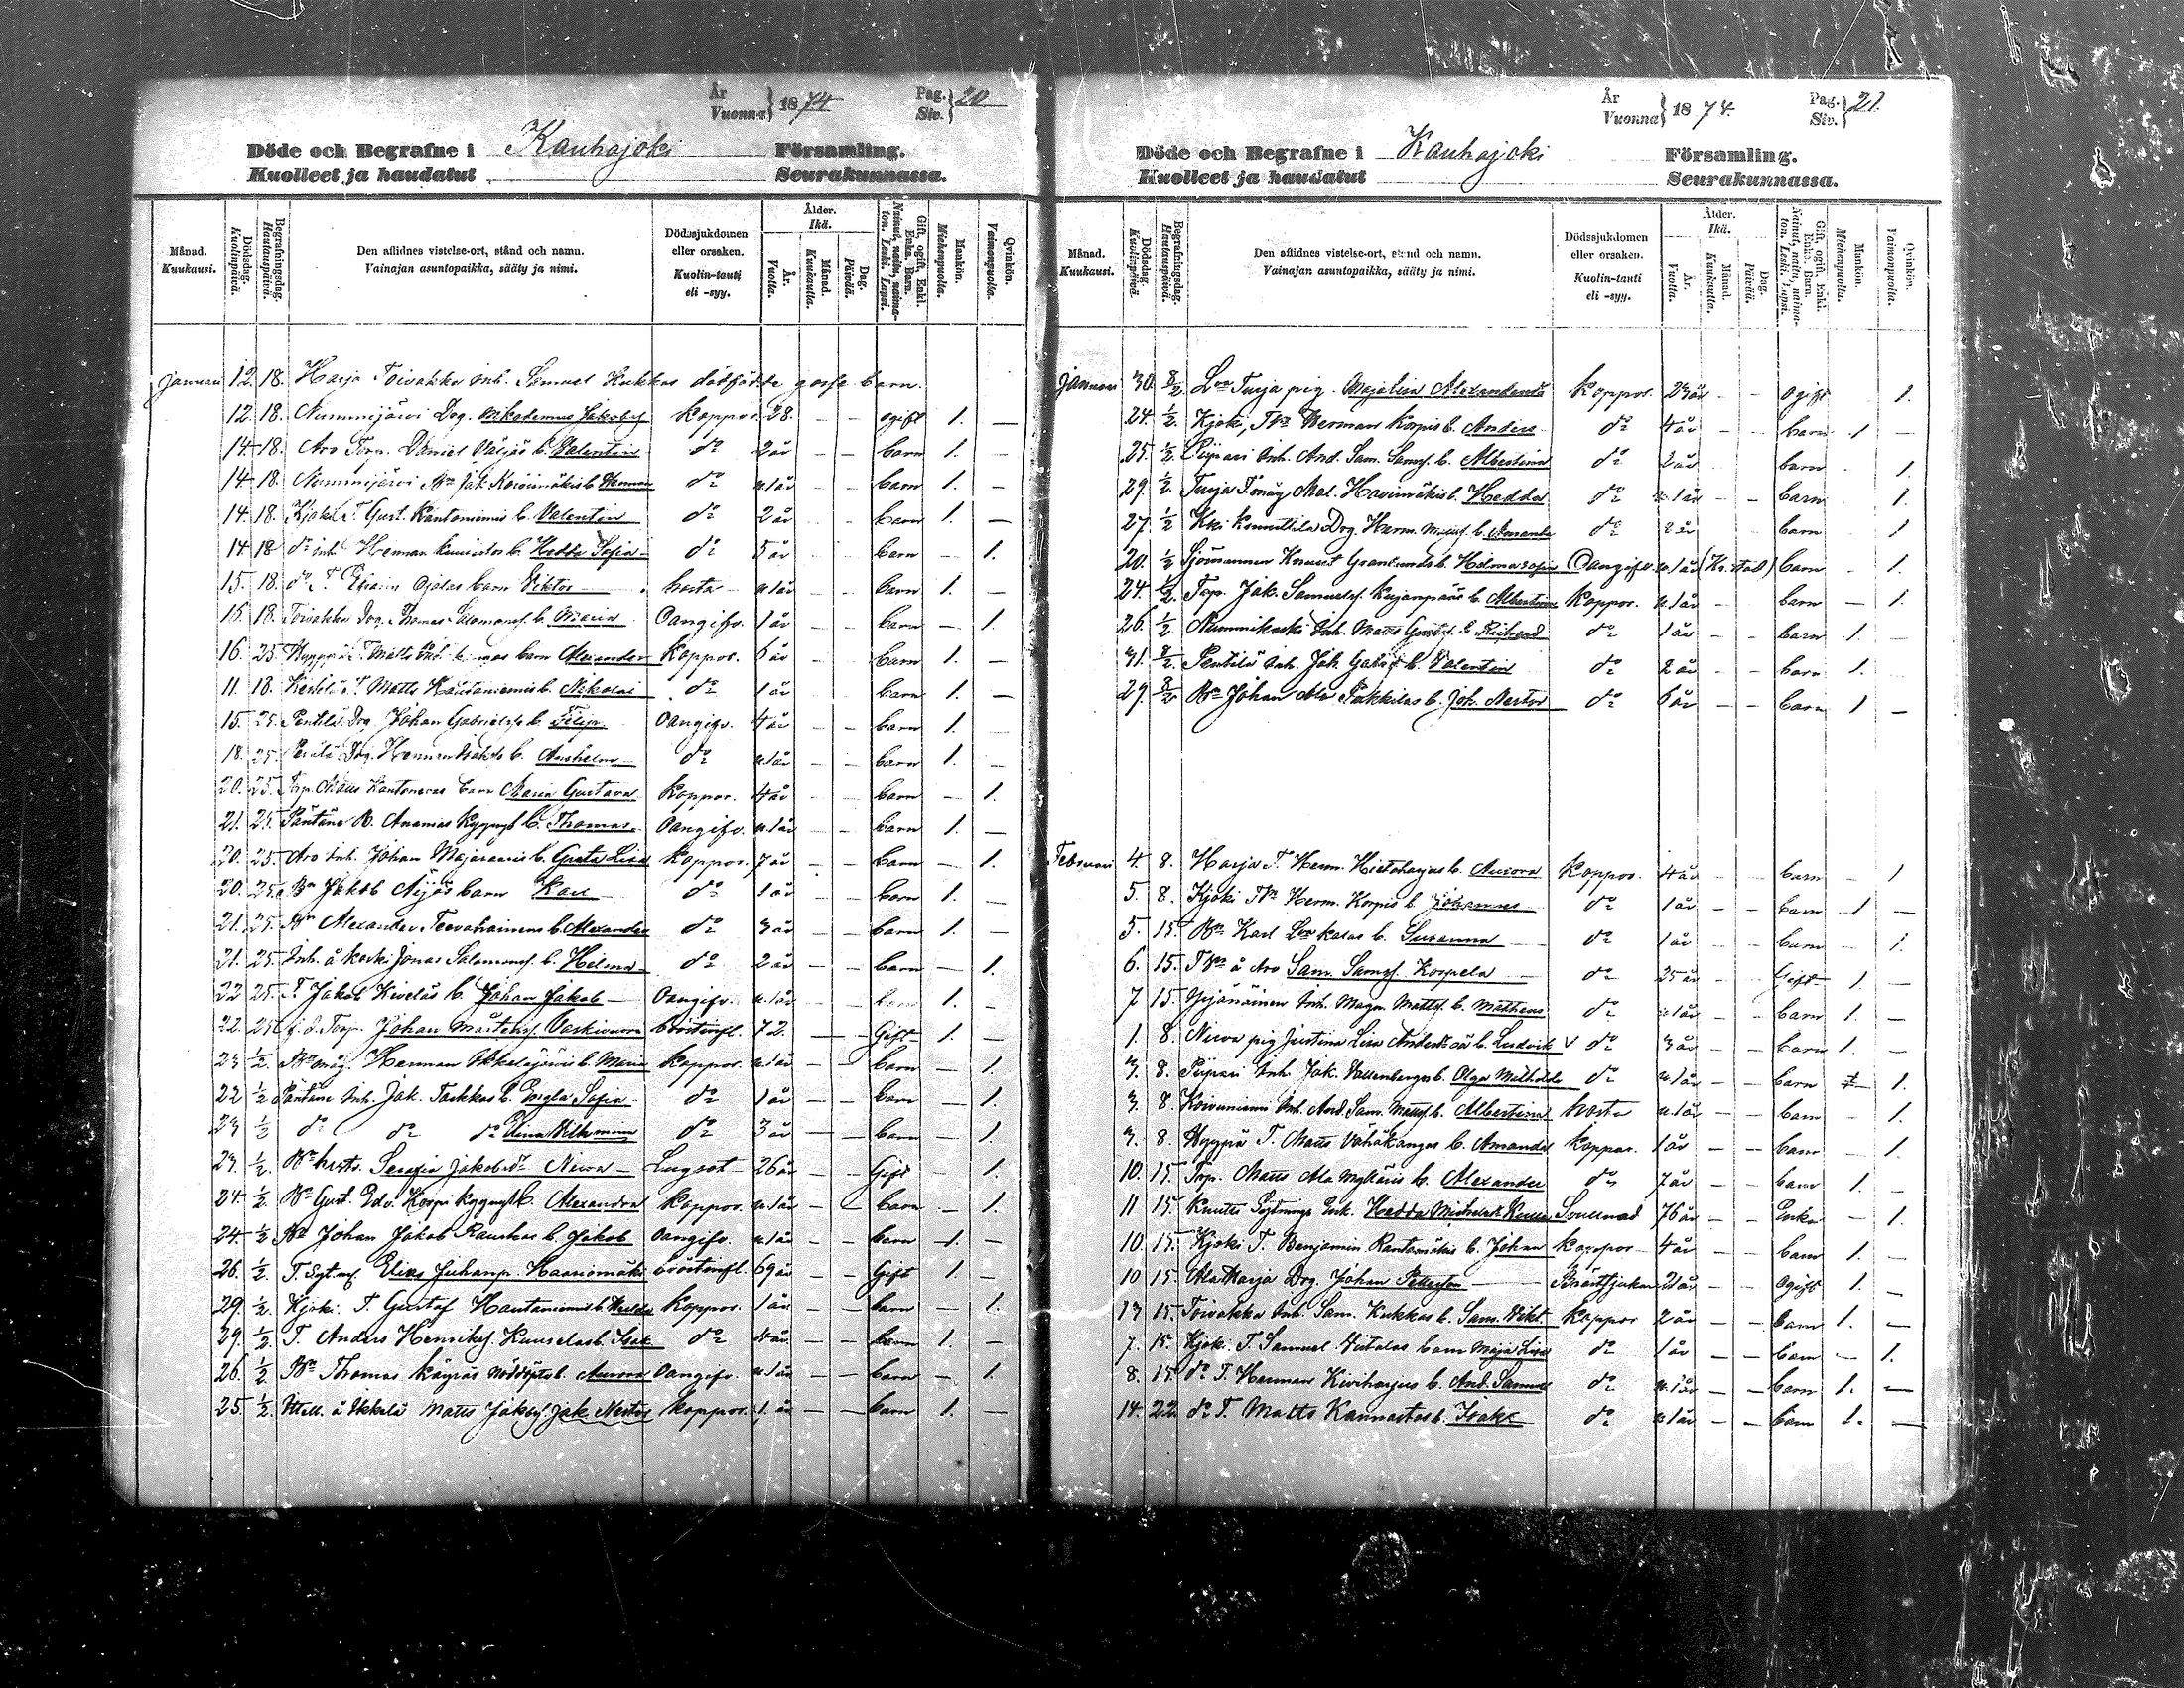 År
Vuonna } 1874
Pag.
Siv. } 20
Döde och Begrafne i Kauhajoki Församling.
Kuolleet ja haudatut Seurakunnassa.
Månad. Kuukausi. Dödsdag. Kuolinpäivä. Begrafningsdag. Hautauspäivä. Den aflidnes vistelse-ort, stånd och namn. Vainajan asuntopaikka, sääty ja nimi. Dödssjukdomen eller orsaken. Kuolin-tauti eli -syy. Ålder. Ikä. År. Vuotta. Månad. Kuukautta. Dag. Päivää. Gift, ogift, Enkl. Enka. Barn. Nainut, naitu, naimaton. Leski. Lapsi. Mankön. Miehenpuolia. Qvinkön. Vaimonpuolia.
Januari 12. 18. Harja Toivakka inh. Samuel Kukkas dödfödde gosse barn.
12. 18. Nummijärvi Drg. Nikodemus Jakobsf Koppor. 28. – – ogift 1. –
14. 18. Aro Torp. Daniel b. Valentin do 2 år – – barn 1. –
14. 18. Nummijärvi Bn Jak. Koivumäkis b. Herman do u. 1 år – – barn 1. –
14. 18. Kjoki T. Gust. Hautaniemis b. Valentin do 2 år barn 1. –
14 18 do inh Herman b. Hedda Sofia do 5 år barn – 1.
15. 18. do T. Efraim Ojalas barn Viktor hosta u 1 år – – barn 1. –
15. 18. Toivakka Drg. Thomas Salomonsf. b. Maria Oangifv. 1 år – – barn – 1.
16. 25. Hyyppä T. Matts barn Alexander Koppor. 6 år – – barn 1. –
11. 18. T. Matts Hautaniemis b. Nikolai do 1 år barn 1. –
15. 25. Pentilä Drg. Johan Gabrielsf b. Filip Oangifv. 4 år – – barn 1.
18. 25. Drg. Herman b. Anshelm do u 1 år – – barn 1. –
20. 25. Torp. Matts Kantoneras barn Maria Gustava Koppor. 4 år – – barn – 1.
21. 25. Päntäne B. Ananias Kyynys b. Thomas Oangifv. u. 1 år – – barn 1. –
20. 25. Aro inh. Johan b. Greta Lisa Koppor. 7 år – – barn – 1.
20. 25. Bn Jakob Äijös barn Karl do 1 år barn 1. –
21. 25. Bn Alexander Teevahainens b. Alexander do 3 år – – barn 1. –
21. 25. Inh. å koski Jonas Salomonsf. b. Helena do 2 år – – barn – 1.
22 25. T. Jakob Kiveläs b. Johan Jakob Oangifv. u. 1 år barn 1. –
22. 25 f. d. Torp. Johan Mårtensf. Vaskivuori bröstinfl. 72. – – Gift 1. –
23 1/2. Bn måg. Herman b. Maria Koppor. u 1 år – – barn – 1.
22 1/2 Päntäne Inh. Jak. Tackkas b. Engla Sofia do 1 år – – barn – 1.
23 1/2 do do do Vilhelmina do 3 år – – barn – 1.
23. 1/2. Bn hustr. Serafia Jakobsdr Neiro Lugsot 26 år – – Gift 1.
24. 1/2. Bn Gust. Edv. Korpi Kyynys b. Alexandra Koppor. u 1 år – – barn – 1.
24. 1/2 Bn Johan Jakob Rauskas b. Jakob Oangifv. u 1 år – – barn 1. –
26. 1/2. T. Sytn. Elias Juhanp. Haaviomäki bröstinfl. 69 år – – Gift 1. –
29. 1/2. Kjoki T. Gustaf Hautaniemis b. Hulda Koppor. 1 år – – barn – 1.
29. 1/2. T. Anders Henriksf. Kuuselas b. Isak do 4 år – – barn 1. –
26. 1/2. Bn Thomas b. Aurora Oangifv. u 1 år – – barn – 1.
25. 1/2. å Ikkelä Matts Jakbsf Jak. Nestor Koppor. 1. år – – barn 1. –
År
Vuonna } 1874.
Pag.
Siv. } 21.
Döde och Begrafne i Kauhajoki Församling.
Kuolleet ja haudatut Seurakunnassa.
Månad. Kuukausi. Dödsdag. Kuolinpäivä. Begrafningsdag. Hautauspäivä. Den aflidnes vistelse-ort, stånd och namn. Vainajan asuntopaikka, sääty ja nimi. Dödssjukdomen eller orsaken. Kuolin-tauti eli -syy. Ålder. Ikä. År. Vuotta. Månad. Kuukautta. Dag. Päivää. Gift, ogift, Enkl. Enka. Barn. Nainut, naitu, naimaton. Leski. Lapsi. Mankön. Miehenpuolia. Qvinkön. Vaimonpuolia.
Januari 30. 8/2. Ln Turja pig. Majalisa Alexandersd Koppor. 23 år – – ogift 1.
24. 1/2. Kjoki, Tn Herman Korpis b. Anders do 4 år – – barn 1 –
25. 1/2. Piipari Inh. And. Sam. Samsf. b. Albertina do 2 år barn – 1.
29. 1/2. Turja T. måg Mat. b. Hedda do u. 1 år – – barn 1.
27. 1/2 Drg. Herm. b. Amanda do 2 år barn 1
20. 1/2 Sjömannen Knuut Granlunds b. Hilma Sofia Oangifv. u 1 år (Kr. stad) barn – 1.
24. 1/2. Torp. Jak. Samuelsf. Kujanpääs b. Albertina Koppor. u. 1 år – barn – 1.
26. 1/2. Nummikoski Inh. Matts Gustsf. b. Richard do 1 år – – barn 1. –
31. 8/2. Pentilä Inh. Joh. Gabsf b. Valentin do 2 år – – barn 1.
29. 8/2 Bn Johan Ala Pukkilas b. Joh. Nestor do 6 år – – barn 1 –
Februari 4. 8. Harja T. Herm. Hietaharjus b. Aurora Koppor. 4 år – – barn – 1
5. 8. Kjoki Tn Herm. Korpis b. Johannes do 1 år – – barn 1 –
5. 15. Bn Karl Lm kalas b. Susanna do 1 år barn – 1.
6. 15. T Bn å Aro Sam. Samsf. Korpela do 25 år – – Gift 1. –
7 15. Inh. Magn. Mattsf. b. Matheus do u 1 år – – barn 1. –
1. 8. Nirva pig Justina Lisa Andersd:s b. Ludvik do 3 år – – barn 1. –
3. 8. Piipari Inh. Jak. Vallenbergs b. Olga Mathilda do u 1 år – – barn 1.
3. 8. Koivuniemi Inh. And. Sam. Mattsf. b. Albertina hosta u. 1 år – – barn – 1.
3. 8. Hyyppä T. Matts Vähäkangas b. Amanda Koppor. 1 år – – barn – 1
10. 15. Torp. Matts Ala Mylläris b. Alexander do 7 år – – barn 1. –
11 15. Knuuts Sytnings Enk. Hedda Michelsd. Svullnad 76 år – – Enka – 1.
10. 15. Kjoki T. Benjamin Rantamäkis b. Johan Koppor 4 år – – barn 1. –
10 15. Ala Harja Drg. Johan Pettersson Bröstsjukan 21 år – – ogift 1. –
13 15. Toivakka Inh. Sam. Kukkas b. Sam. Vikt. Koppor 2 år – – barn 1. –
7. 15. Kjoki. T. Samuel Viitalas barn Maja Lisa do 1 år – – barn – 1.
8. 15. do T. Herman Kiviharjus b. And. Samuel do u. 1 år – – barn 1. –
14. 22. do T. Matts Kannastos b. Isak do u 1 år – – barn 1. –